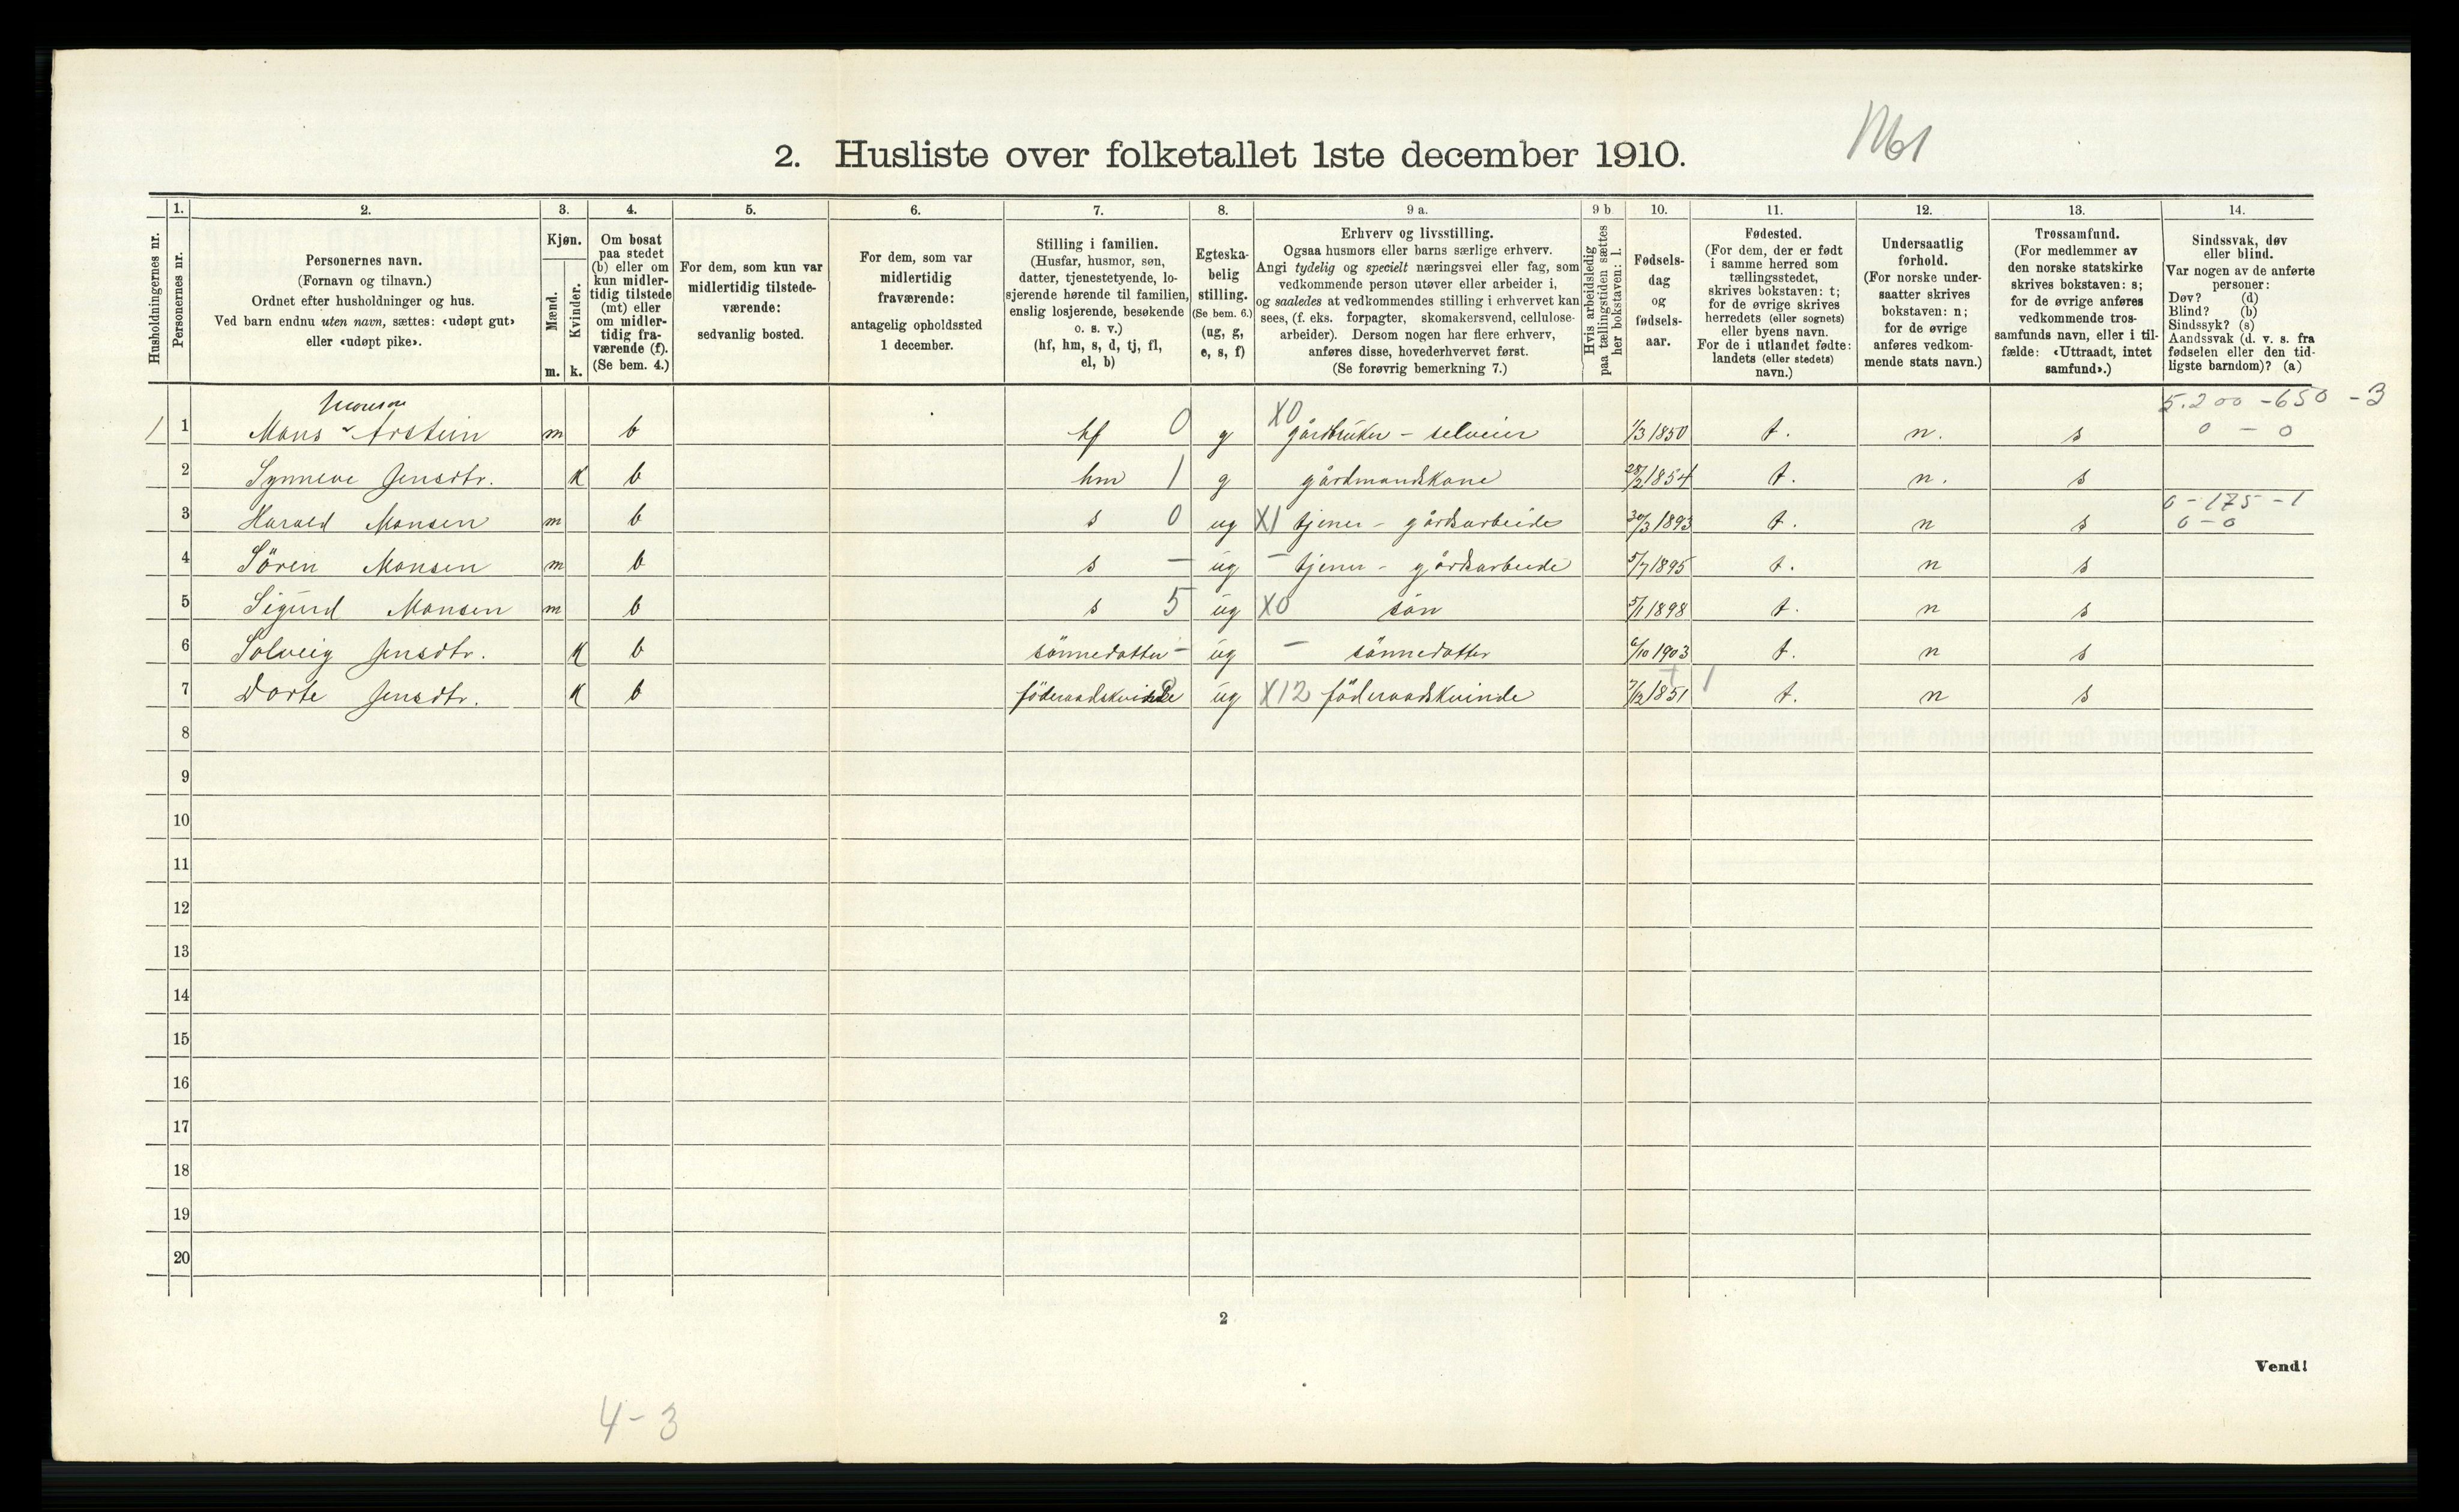 Mol
2. Husliste over folketallet 1ste december 1910.
Husholdningernes nr.
1. 2. 3. 4. 5. 6. 7. 8. 9 a. 9 b 10. 11. 12. 13. 14.
Personernes nr.
Personernes navn.
(Fornavn og tilnavn.)
Ordnet efter husholdninger og hus.
Ved barn endnu uten navn, sættes: «udøpt gut»
eller «udøpt pike».
Kjøn.
Mænd.
Kvinder.
m. k.
Om bosat
paa stedet
(b) eller om
kun midler-
tidig tilstede
(mt) eller
om midler-
tidig fra-
værende (f).
(Se bem. 4.)
For dem, som kun var
midlertidig tilstede-
værende:
sedvanlig bosted.
For dem, som var
midlertidig
fraværende:
antagelig opholdssted
1 december.
Stilling i familien.
(Husfar, husmor, søn,
datter, tjenestetyende, lo-
sjerende hørende til familien,
enslig losjerende, besøkende
o. s. v.)
(hf, hm, s, d, tj, fl,
el, b)
Egteska-
belig
stilling.
(Se bem. 6.)
(ug, g,
e, s, f)
Erhverv og livsstilling.
Ogsaa husmors eller barns særlige erhverv.
Angi tydelig og specielt næringsvei eller fag, som
vedkommende person utøver eller arbeider i,
og saaledes at vedkommendes stilling i erhvervet kan
sees, (f. eks. forpagter, skomakersvend, cellulose-
arbeider). Dersom nogen har flere erhverv,
anføres disse, hovederhvervet først.
(Se forøvrig bemerkning 7.)
Hvis arbeidsledig
paa tællingstiden sættes
her bokstaven: l.
Fødsels-
dag
og
fødsels-
aar.
Fødested.
(For dem, der er født
i samme herred som
tællingsstedet,
skrives bokstaven: t;
for de øvrige skrives
herredets (eller sognets)
eller byens navn.
For de i utlandet fødte:
landets (eller stedets)
navn.)
Undersaatlig
forhold.
(For norske under-
saatter skrives
bokstaven: n;
for de øvrige
anføres vedkom-
mende stats navn.)
Trossamfund.
(For medlemmer av
den norske statskirke
skrives bokstaven: s;
for de øvrige anføres
vedkommende tros-
samfunds navn, eller i til-
fælde: «Uttraadt, intet
samfund».)
Sindssvak, døv
eller blind.
Var nogen av de anførte
personer:
Døv? (d)
Blind? (b)
Sindssyk? (s)
Aandssvak (d. v. s. fra
fødselen eller den tid-
ligste barndom)? (a)
Monsen 5.200 - 650 - 3
1 1 Mons Arstein m b hf 0 g X0 gårdbruker - selveier 1/3 1850 t. n. s 0 - 0
2 Synneve Jensdtr. k b hm 1 g gårdmandskone 28/2 1854 t. n. s
0 - 175 - 1
3 Harald Monsen m b s 0 ug X1 tjener - gårdsarbeide 30/3 1893 t. n s 0 - 0
4 Sören Monsen m b s - ug - tjener - gårdsarbeide 5/7 1895 t. n s
5 Sigurd Monsen m b s 5 ug X0 sön 5/1 1898 t. n s
6 Solveig Jensdtr. k b sönnedatter - ug - sönnedatter 6/10 1903 t. n s
7 Dorte Jensdtr. k b föderaadskvinde ug X12 föderaadskvinde 7/12 1851 1 t. n s
8
9
10
11
12
13
14
15
16
17
18
19
20
2
Vend!
4 - 3